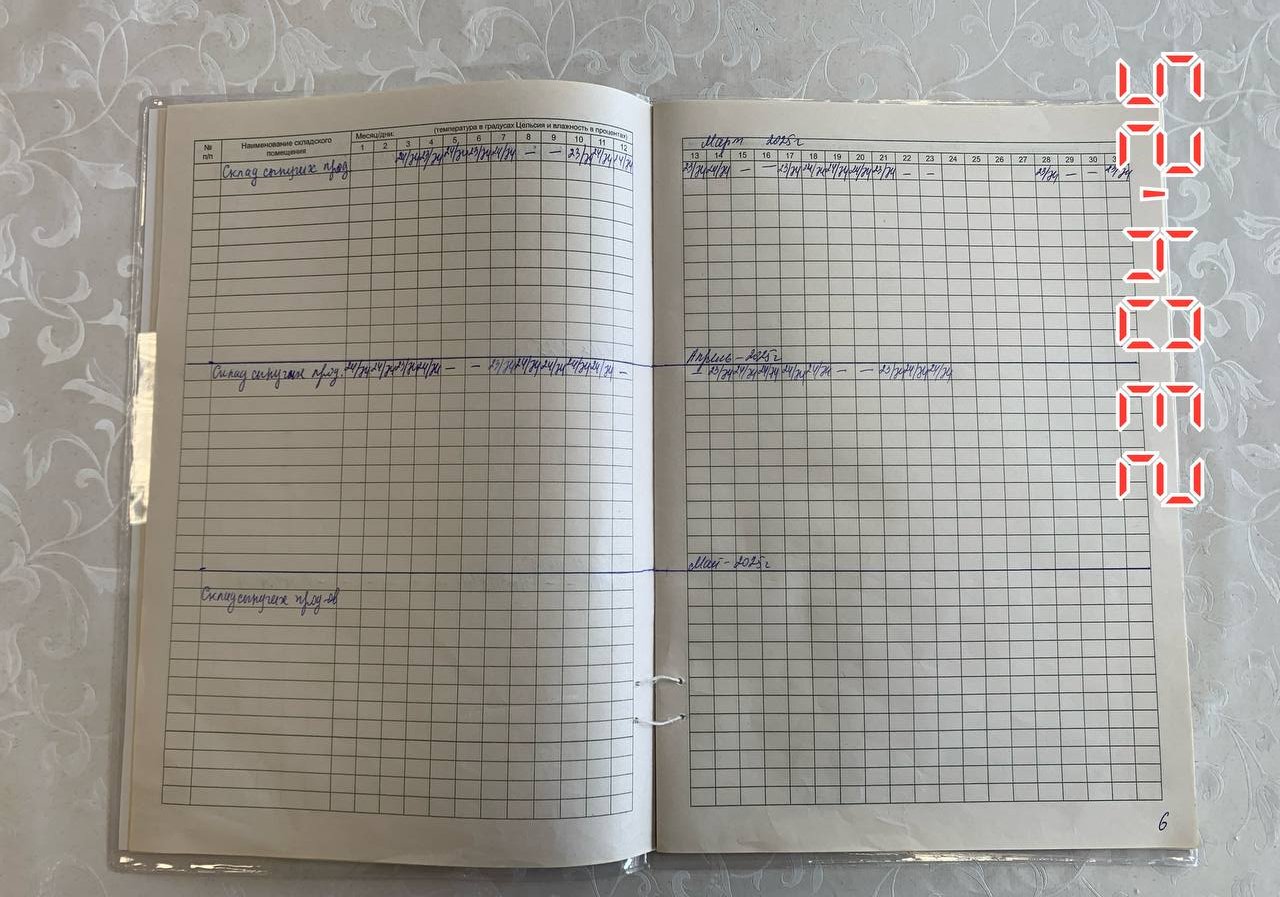 № п/п Наименование складского помещения Месяц/дни: (температура в градусах Цельсия и влажность в процентах)
1 2 3 4 5 6 7 8 9 10 11 12
Склад сыпучих прод. 24/74 23/74 24/74 23/74 24/74 — — 23/74 24/74 24/74
Склад сыпучих прод. 24/74 24/74 23/74 24/74 — — 23/74 24/74 24/74 24/74 24/74 —
Склад сыпучих прод-ов
Март 2025г
13 14 15 16 17 18 19 20 21 22 23 24 25 26 27 28 29 30
23/74 24/74 — — 23/74 24/74 24/74 24/74 23/74 — — 23/74 — — 23/74
Апрель - 2025г
— 23/74 24/74 24/74 24/74 24/74 — — 23/74 24/74 24/74
Май - 2025г
6